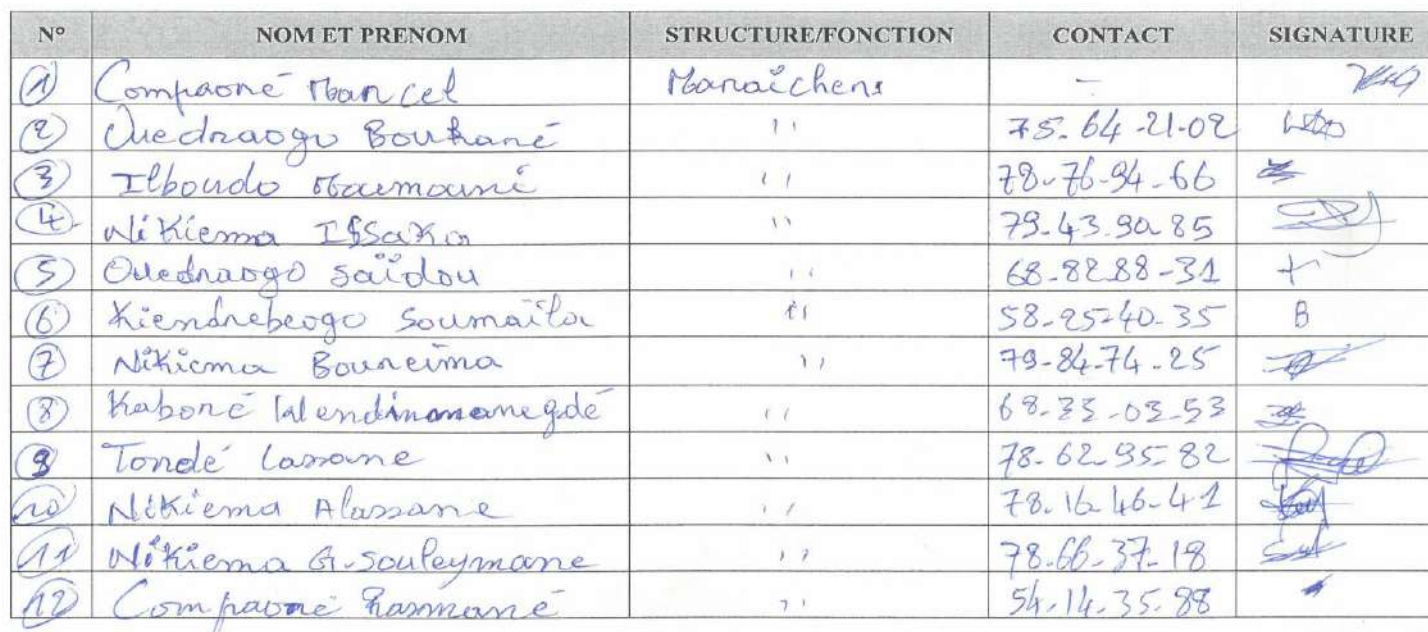 N° NOM ET PRENOM STRUCTURE/FONCTION CONTACT SIGNATURE
1 Compaoré Marcel Maraîchers -
2 Ouedraogo Boukaré '' 75-64-21-02
3 Ilboudo Maimouni '' 78-76-94-66
4 Nikiema Issaka '' 79-43-90-85
5 Ouedraogo Saïdou '' 68-82.88-31 +
6 Kiendrebeogo Soumaïla '' 58-25-40-35 B
7 Nikiema Boureima '' 79-84-74-25
8 Kaboré Wendinmanegdé '' 68-33-03-53
9 Tondé Lassane '' 78-62-95-82
10 Nikiema Alassane '' 78-16-46-41
11 Nikiema G-Souleymane '' 78-66-37-18
12 Compaoré Rasmané '' 54-14-35-88